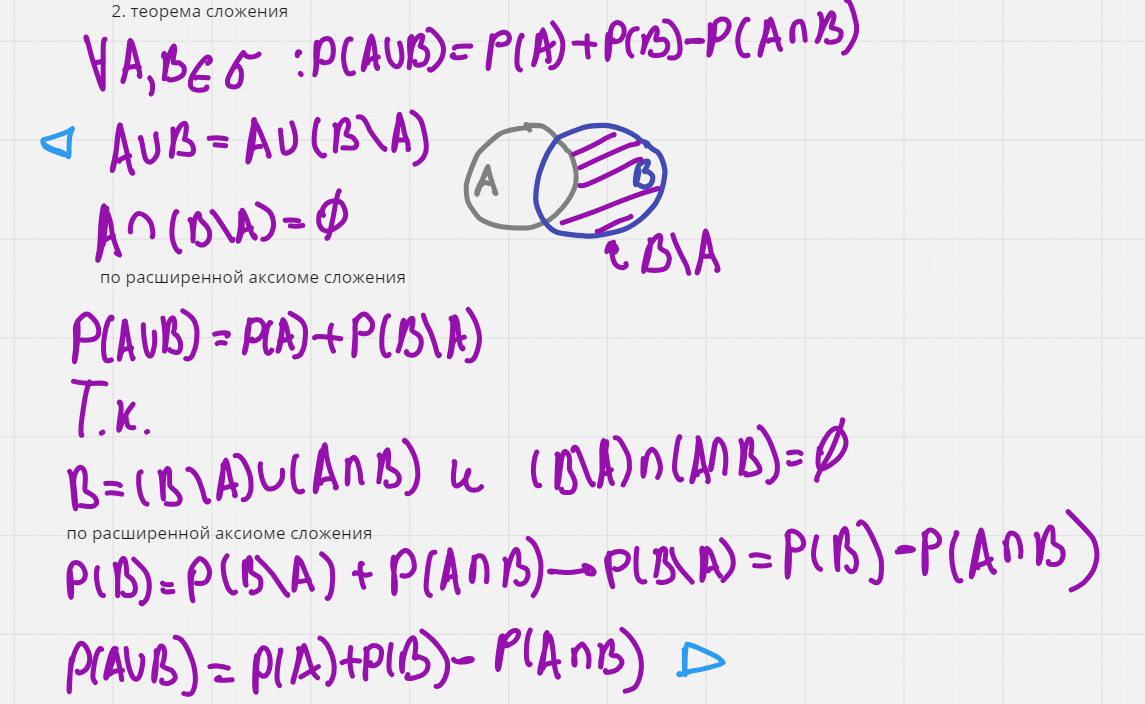 2. теорема сложения
∀A,B∈σ : P(A∪B)=P(A)+P(B)-P(A∩B)
A∪B = A∪(B\A)
A
B
A∩(B\A)=∅
B\A
по расширенной аксиоме сложения
P(A∪B) = P(A)+P(B\A)
Т.к.
B=(B\A)∪(A∩B) и (B\A)∩(A∩B)=∅
по расширенной аксиоме сложения
P(B)=P(B\A)+P(A∩B)→P(B\A)=P(B)-P(A∩B)
P(A∪B)=P(A)+P(B)-P(A∩B)